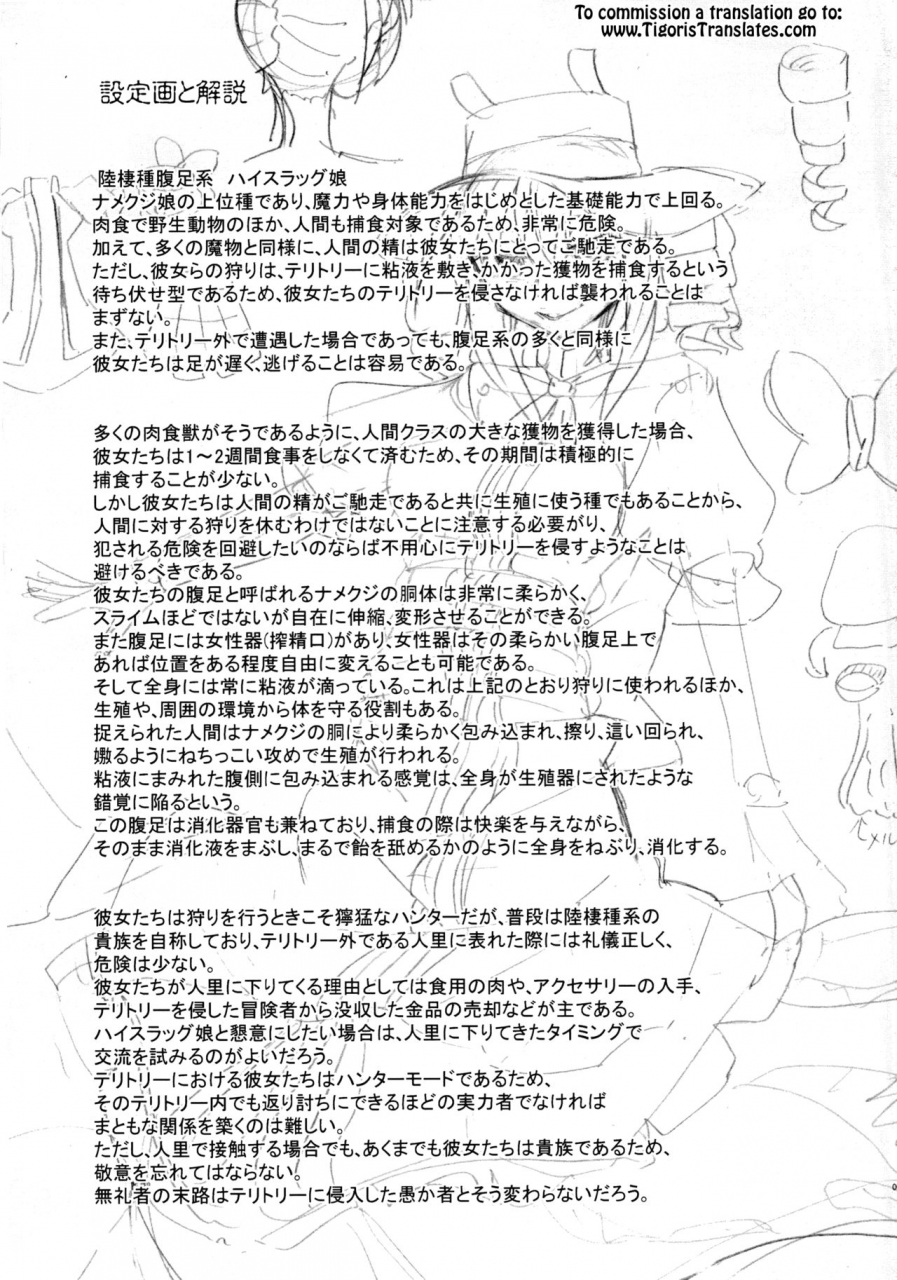 To commission a translation go to:
www.TigorisTranslates.com
設定画と解説
陸棲種腹足系　ハイスラッグ娘
ナメクジ娘の上位種であり、魔力や身体能力をはじめとした基礎能力で上回る。
肉食で野生動物のほか、人間も捕食対象であるため、非常に危険。
加えて、多くの魔物と同様に、人間の精は彼女たちにとってご馳走である。
ただし、彼女らの狩りは、テリトリーに粘液を敷き、かかった獲物を捕食するという
待ち伏せ型であるため、彼女たちのテリトリーを侵さなければ襲われることは
まずない。
また、テリトリー外で遭遇した場合であっても、腹足系の多くと同様に
彼女たちは足が遅く、逃げることは容易である。
多くの肉食獣がそうであるように、人間クラスの大きな獲物を獲得した場合、
彼女たちは1～2週間食事をしなくて済むため、その期間は積極的に
捕食することが少ない。
しかし彼女たちは人間の精がご馳走であると共に生殖に使う種でもあることから、
人間に対する狩りを休むわけではないことに注意する必要がり、
犯される危険を回避したいのならば不用心にテリトリーを侵すようなことは
避けるべきである。
彼女たちの腹足と呼ばれるナメクジの胴体は非常に柔らかく、
スライムほどではないが自在に伸縮、変形させることができる。
また腹足には女性器(搾精口)があり、女性器はその柔らかい腹足上で
あれば位置をある程度自由に変えることも可能である。
そして全身には常に粘液が滴っている。これは上記のとおり狩りに使われるほか、
生殖や、周囲の環境から体を守る役割もある。
捉えられた人間はナメクジの胴により柔らかく包み込まれ、擦り、這い回られ、
嫐るようにねちっこい攻めで生殖が行われる。
粘液にまみれた腹側に包み込まれる感覚は、全身が生殖器にされたような
錯覚に陥るという。
この腹足は消化器官も兼ねており、捕食の際は快楽を与えながら、
そのまま消化液をまぶし、まるで飴を舐めるかのように全身をねぶり、消化する。
彼女たちは狩りを行うときこそ獰猛なハンターだが、普段は陸棲種系の
貴族を自称しており、テリトリー外である人里に表れた際には礼儀正しく、
危険は少ない。
彼女たちが人里に下りてくる理由としては食用の肉や、アクセサリーの入手、
テリトリーを侵した冒険者から没収した金品の売却などが主である。
ハイスラッグ娘と懇意にしたい場合は、人里に下りてきたタイミングで
交流を試みるのがよいだろう。
テリトリーにおける彼女たちはハンターモードであるため、
そのテリトリー内でも返り討ちにできるほどの実力者でなければ
まともな関係を築くのは難しい。
ただし、人里で接触する場合でも、あくまでも彼女たちは貴族であるため、
敬意を忘れてはならない。
無礼者の末路はテリトリーに侵入した愚か者とそう変わらないだろう。